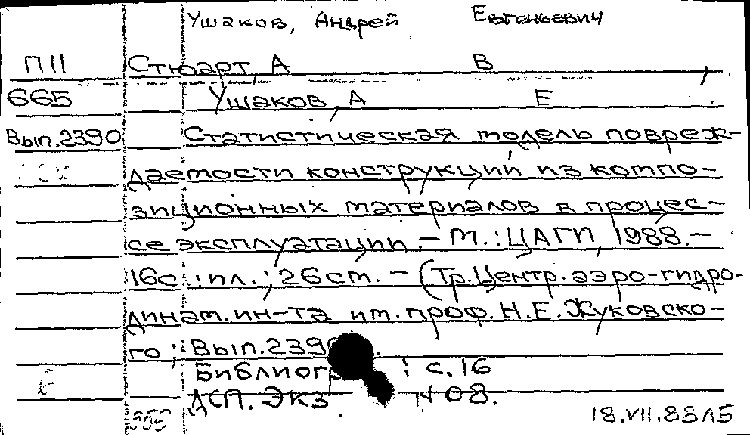 Ушаков, Андрей Евгеньевич
П11 Стюарт, А В
665 Ушаков, А Е
Вып.2390 Статистическая модель повреж-
даемости конструкций из компо-
зиционных материалов в процес-
се эксплуатации. – М.: ЦАГИ, 1988. –
16с.: ил.; 26см. – (Тр. Центр. аэро-гидро-
динам. ин-та им. проф. Н. Е. Жуковско-
го; Вып.2390.
: с.16
ДСП. Экз. 08.